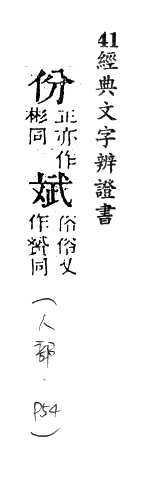 41經典文字辨證書
份正亦作彬同斌俗俗又作贇同(人部.P54)